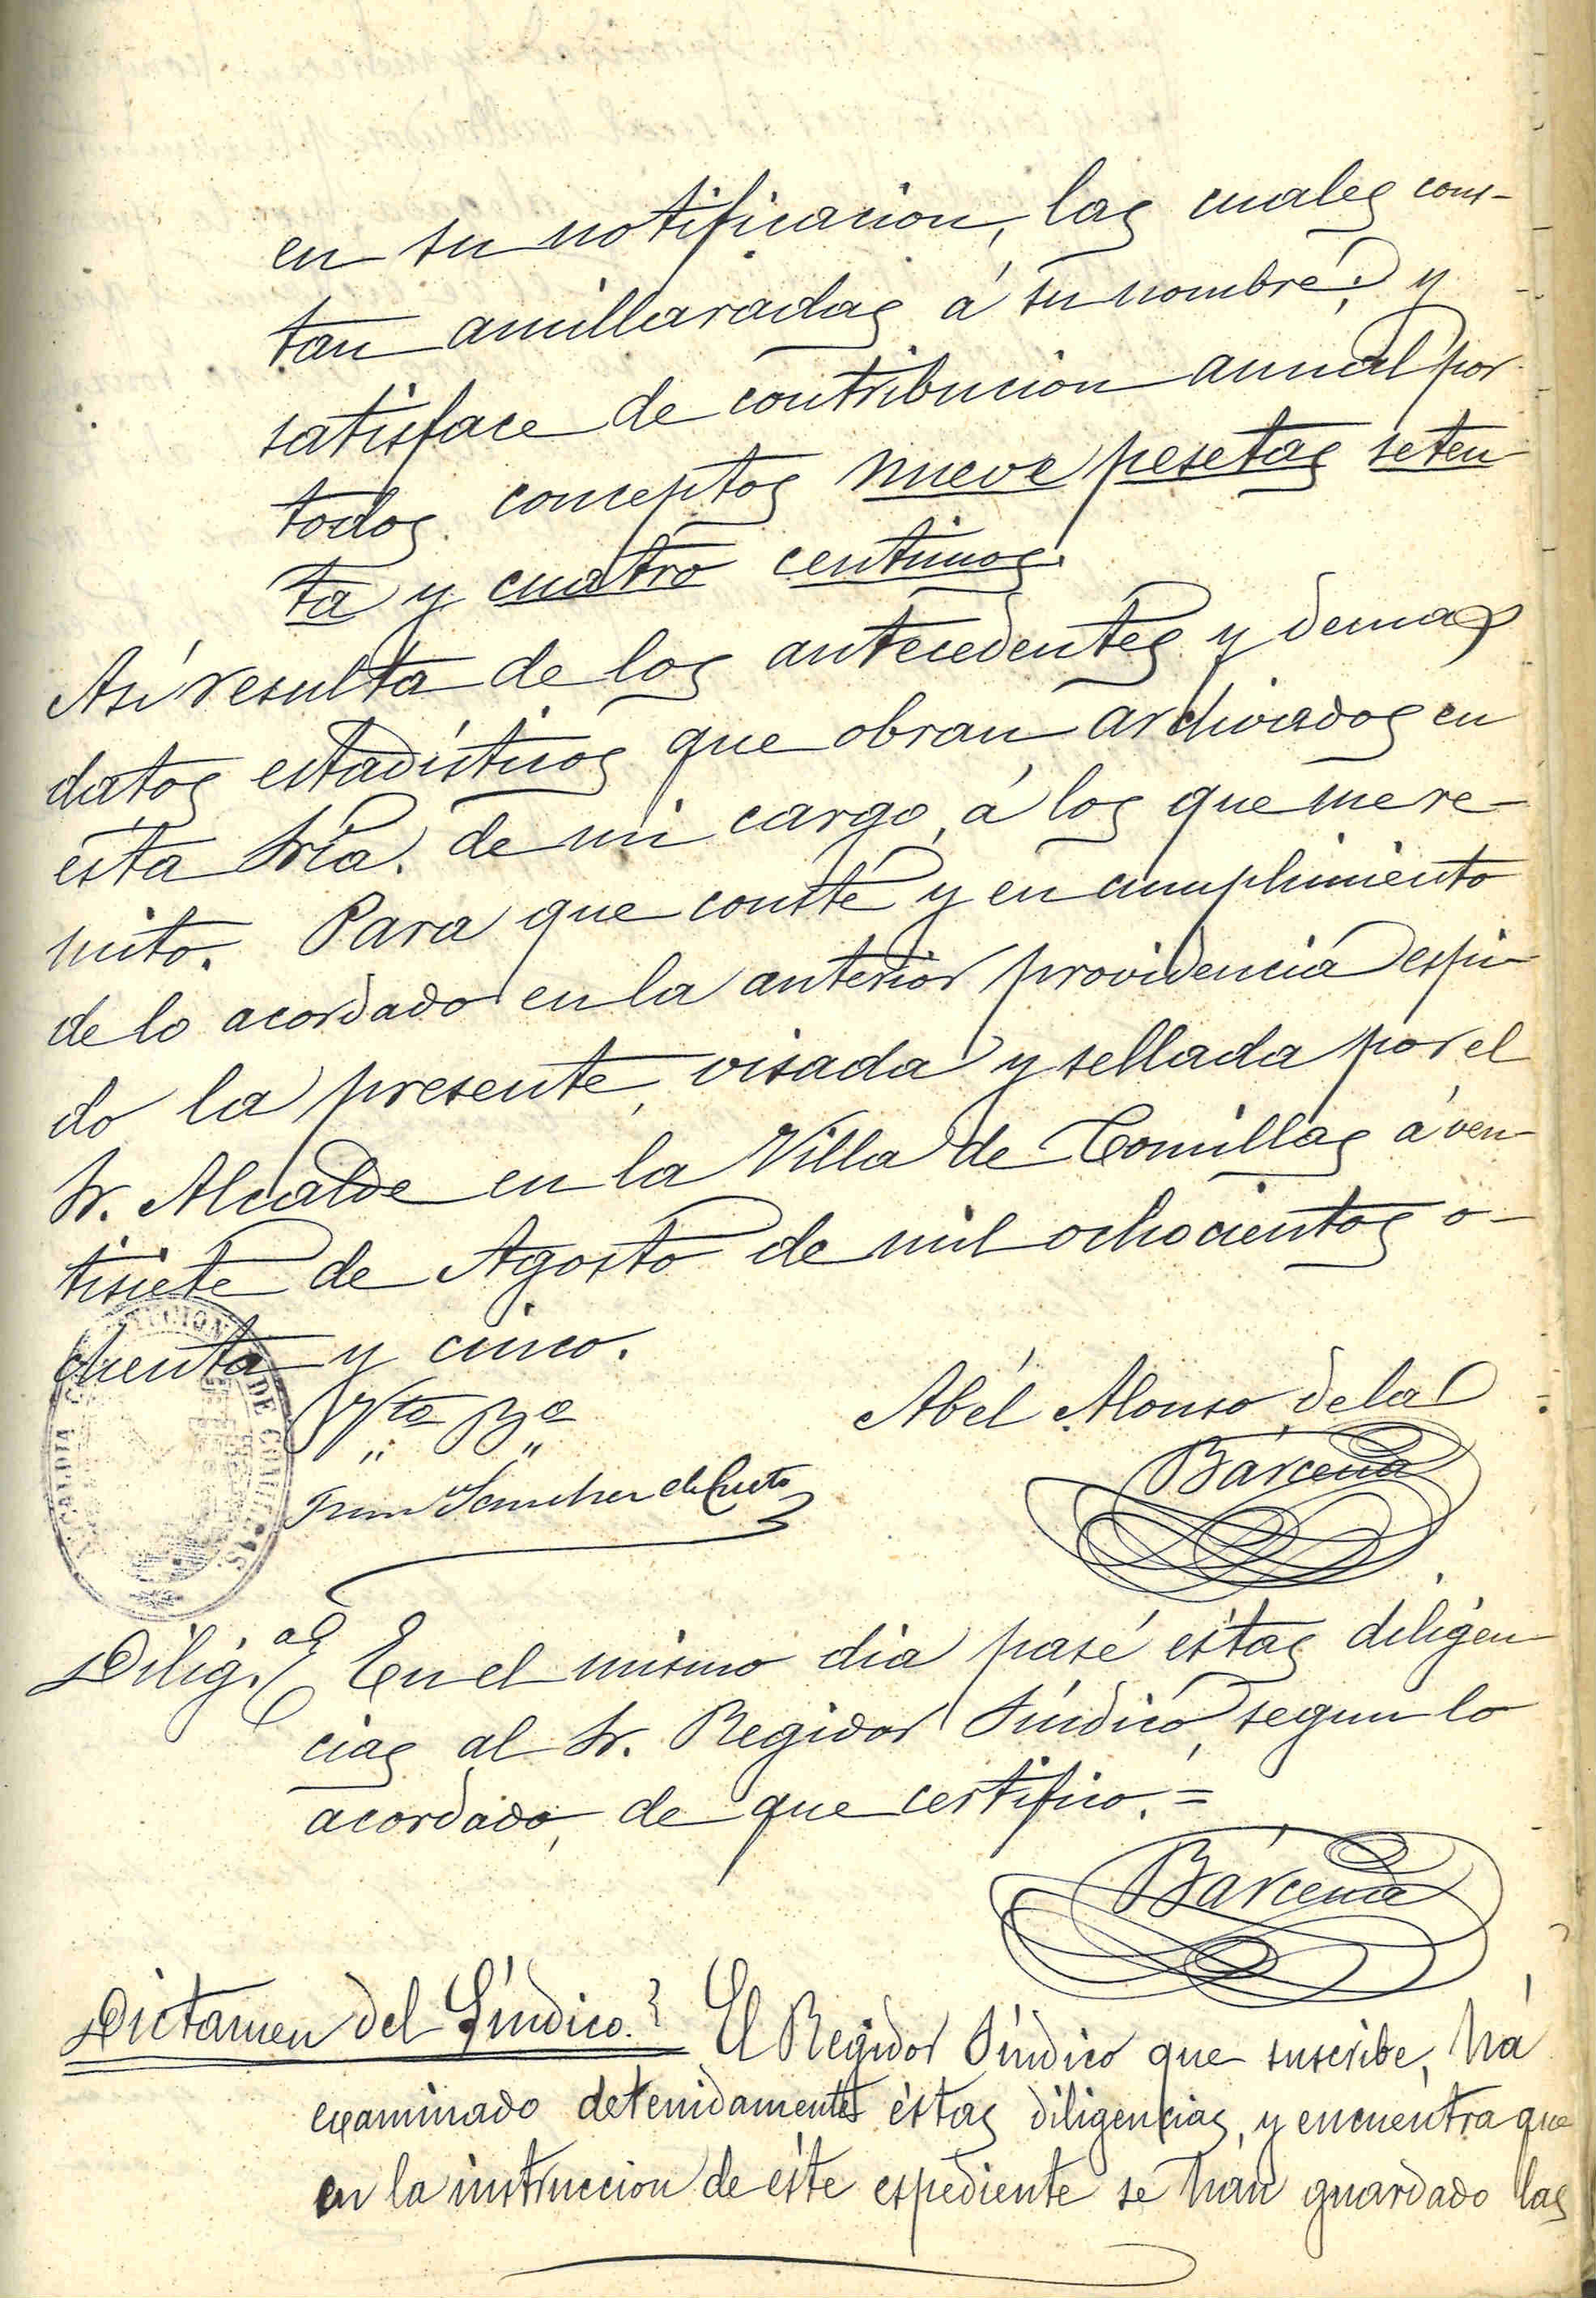 en su notificacion, las cuales cons-
tan amillaradas á su nombre; y
satisface de contribucion anual por
todos conceptos nueve pesetas seten-
ta y cuatro centimos.
Así resulta de los antecedentes y demas
datos estadísticos que obran archivados en
esta Sría. de mi cargo, á los que me re-
mito. Para que conste y en cumplimiento
de lo acordado en la anterior providencia espi-
do la presente, visada y sellada por el
Sr. Alcalde en la Villa de Comillas á ven-
tisiete de Agosto de mil ochocientos o-
chenta y cinco.
Vto Bo
Abél Alonso de la
Bárcena
Sanchez de Cueto
ALCALDIA CONSTITUCIONAL DE COMILLAS
Dilig.as En el mismo dia pasé éstas diligen-
cias al Sr. Regidor Síndico, segun lo
acordado, de que certifico.=
Bárcena
Dictamen del Síndico. El Regidor Síndico que suscribe, há
examinado detenidamente éstas diligencias, y encuentra que
en la instruccion de éste espediente se han guardado las